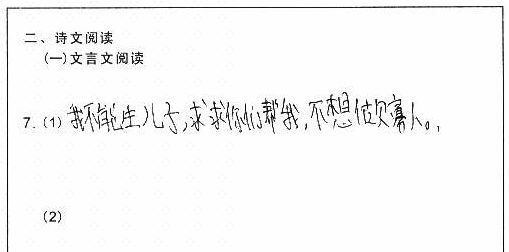 二、诗文阅读
(一)文言文阅读
7. (1) 我不能生儿子,求求你们帮我,不想做寡人。
(2)